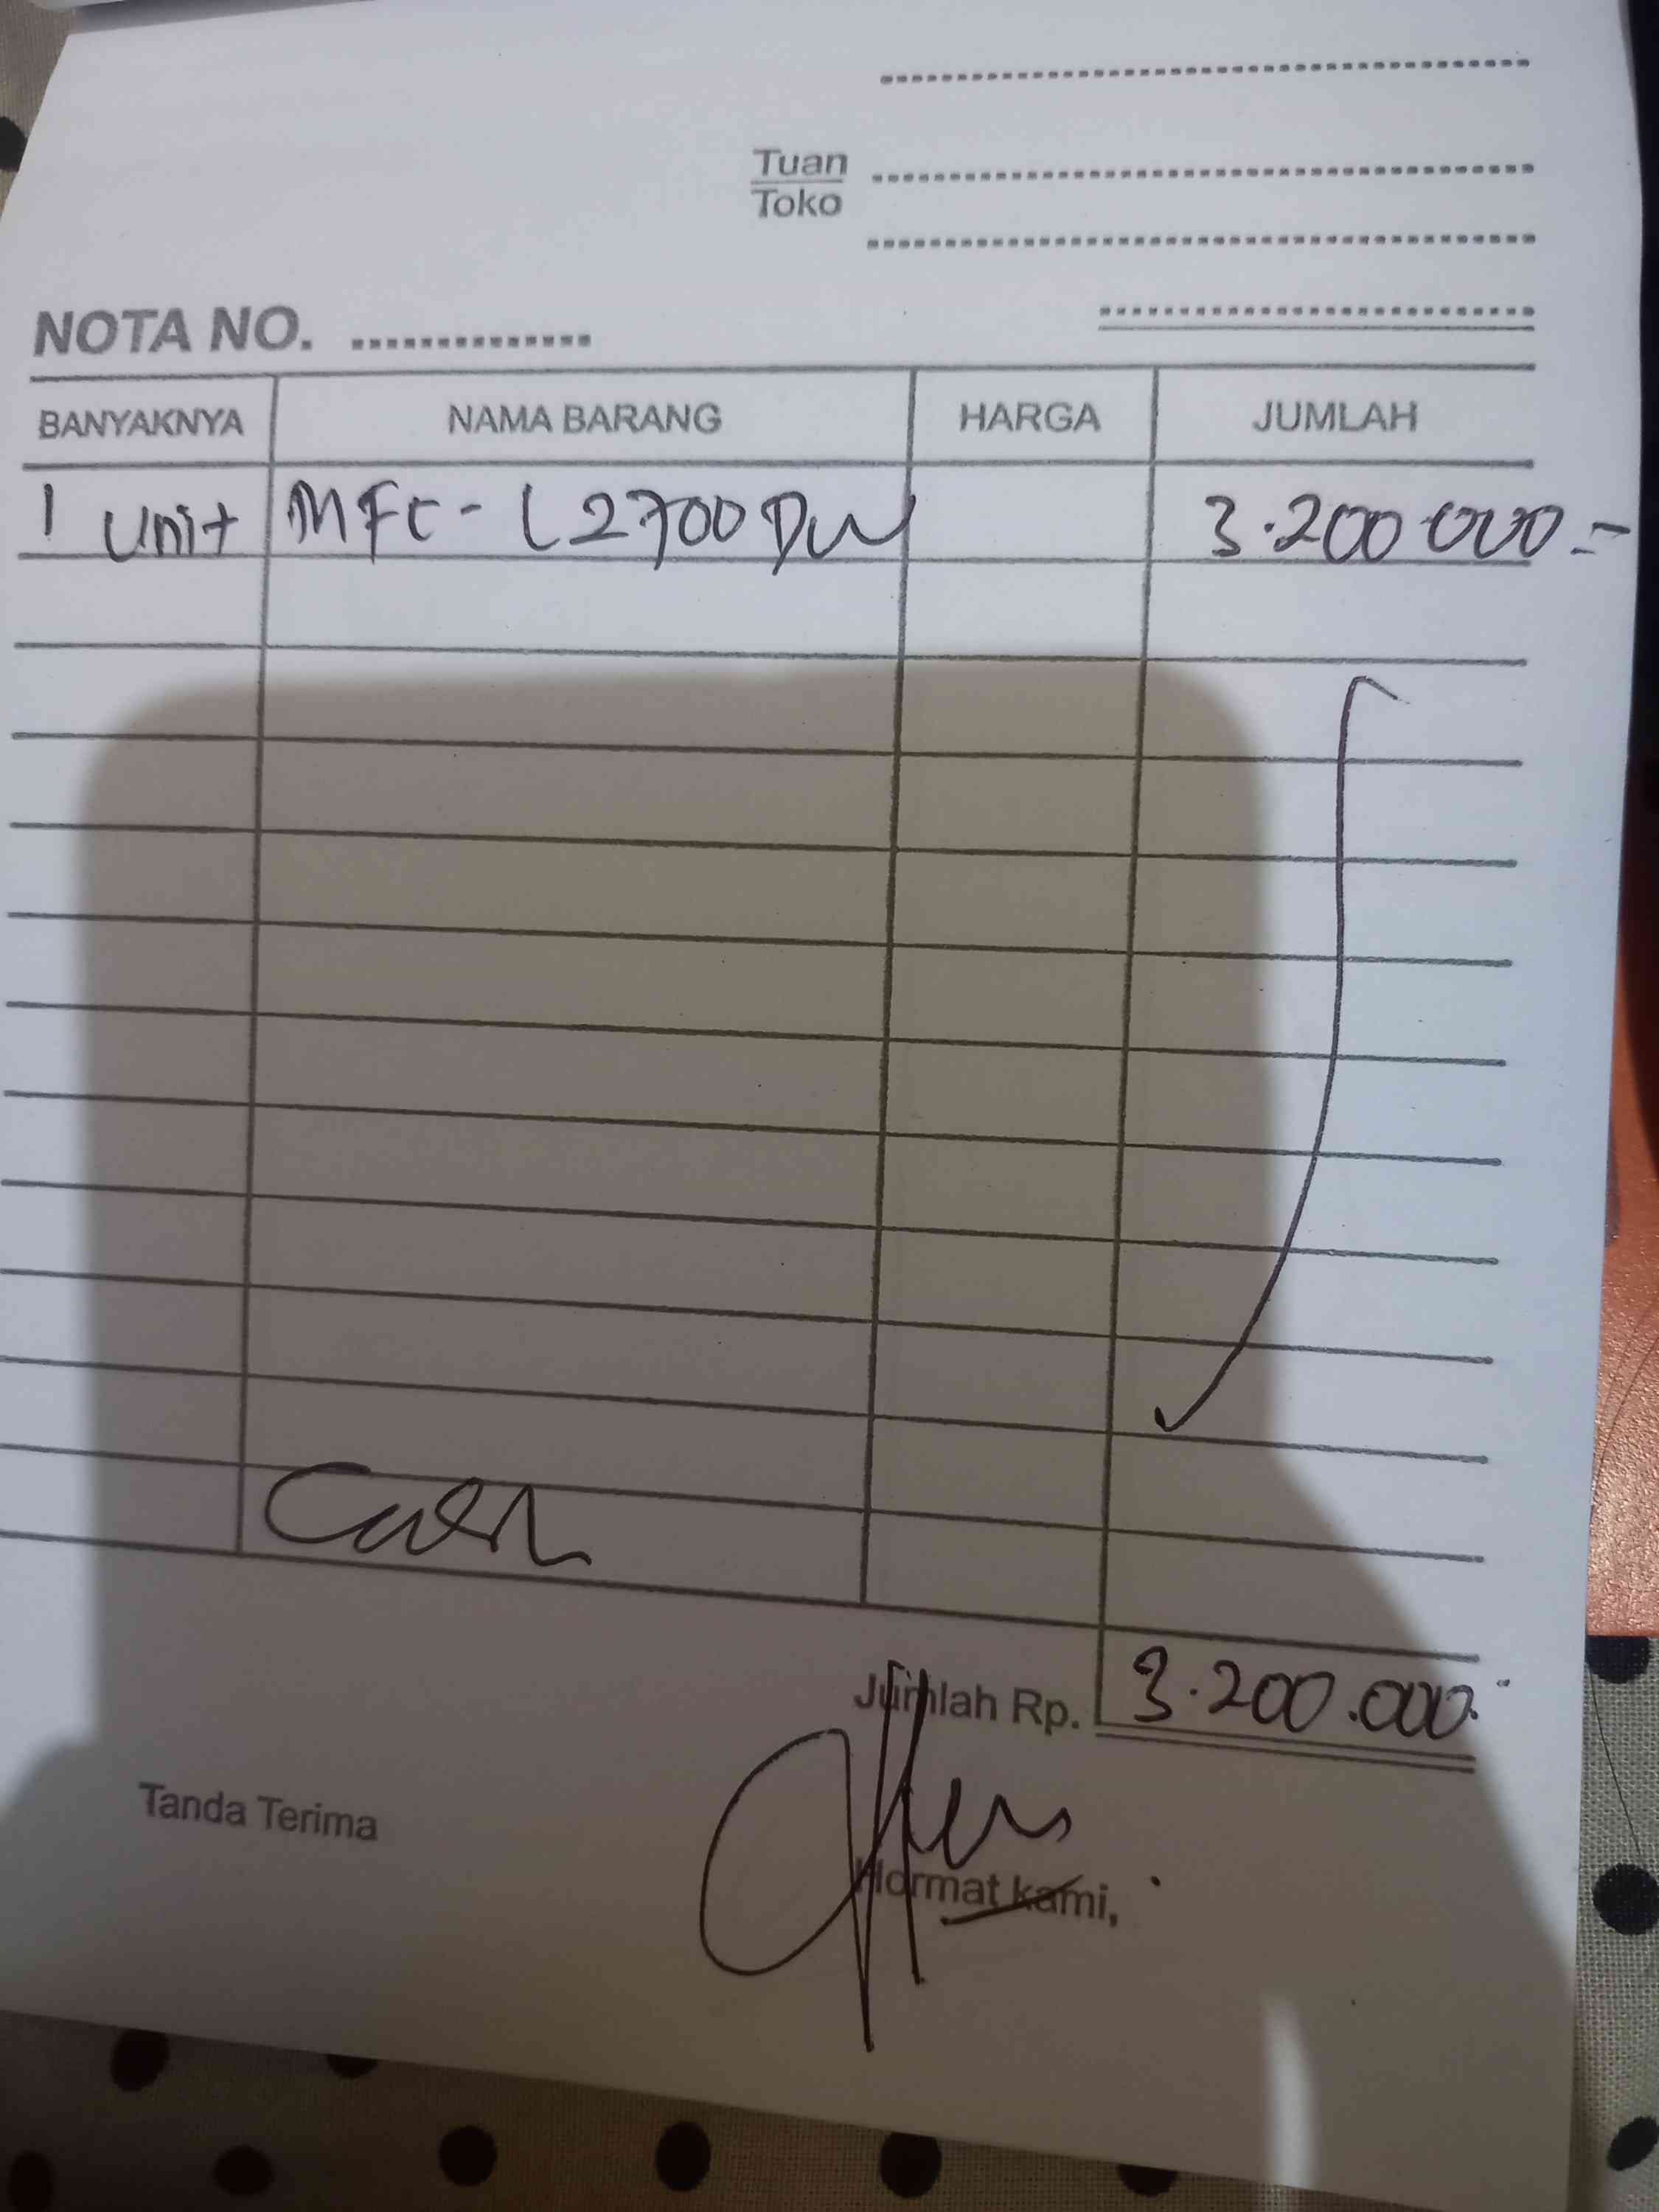 Tuan
Toko
NOTA NO. ...............
BANYAKNYA NAMA BARANG HARGA JUMLAH
1 Unit MFC - L2700DW 3.200.000.-
Cash
Jumlah Rp. 3.200.000.-
Tanda Terima
Hormat kami,